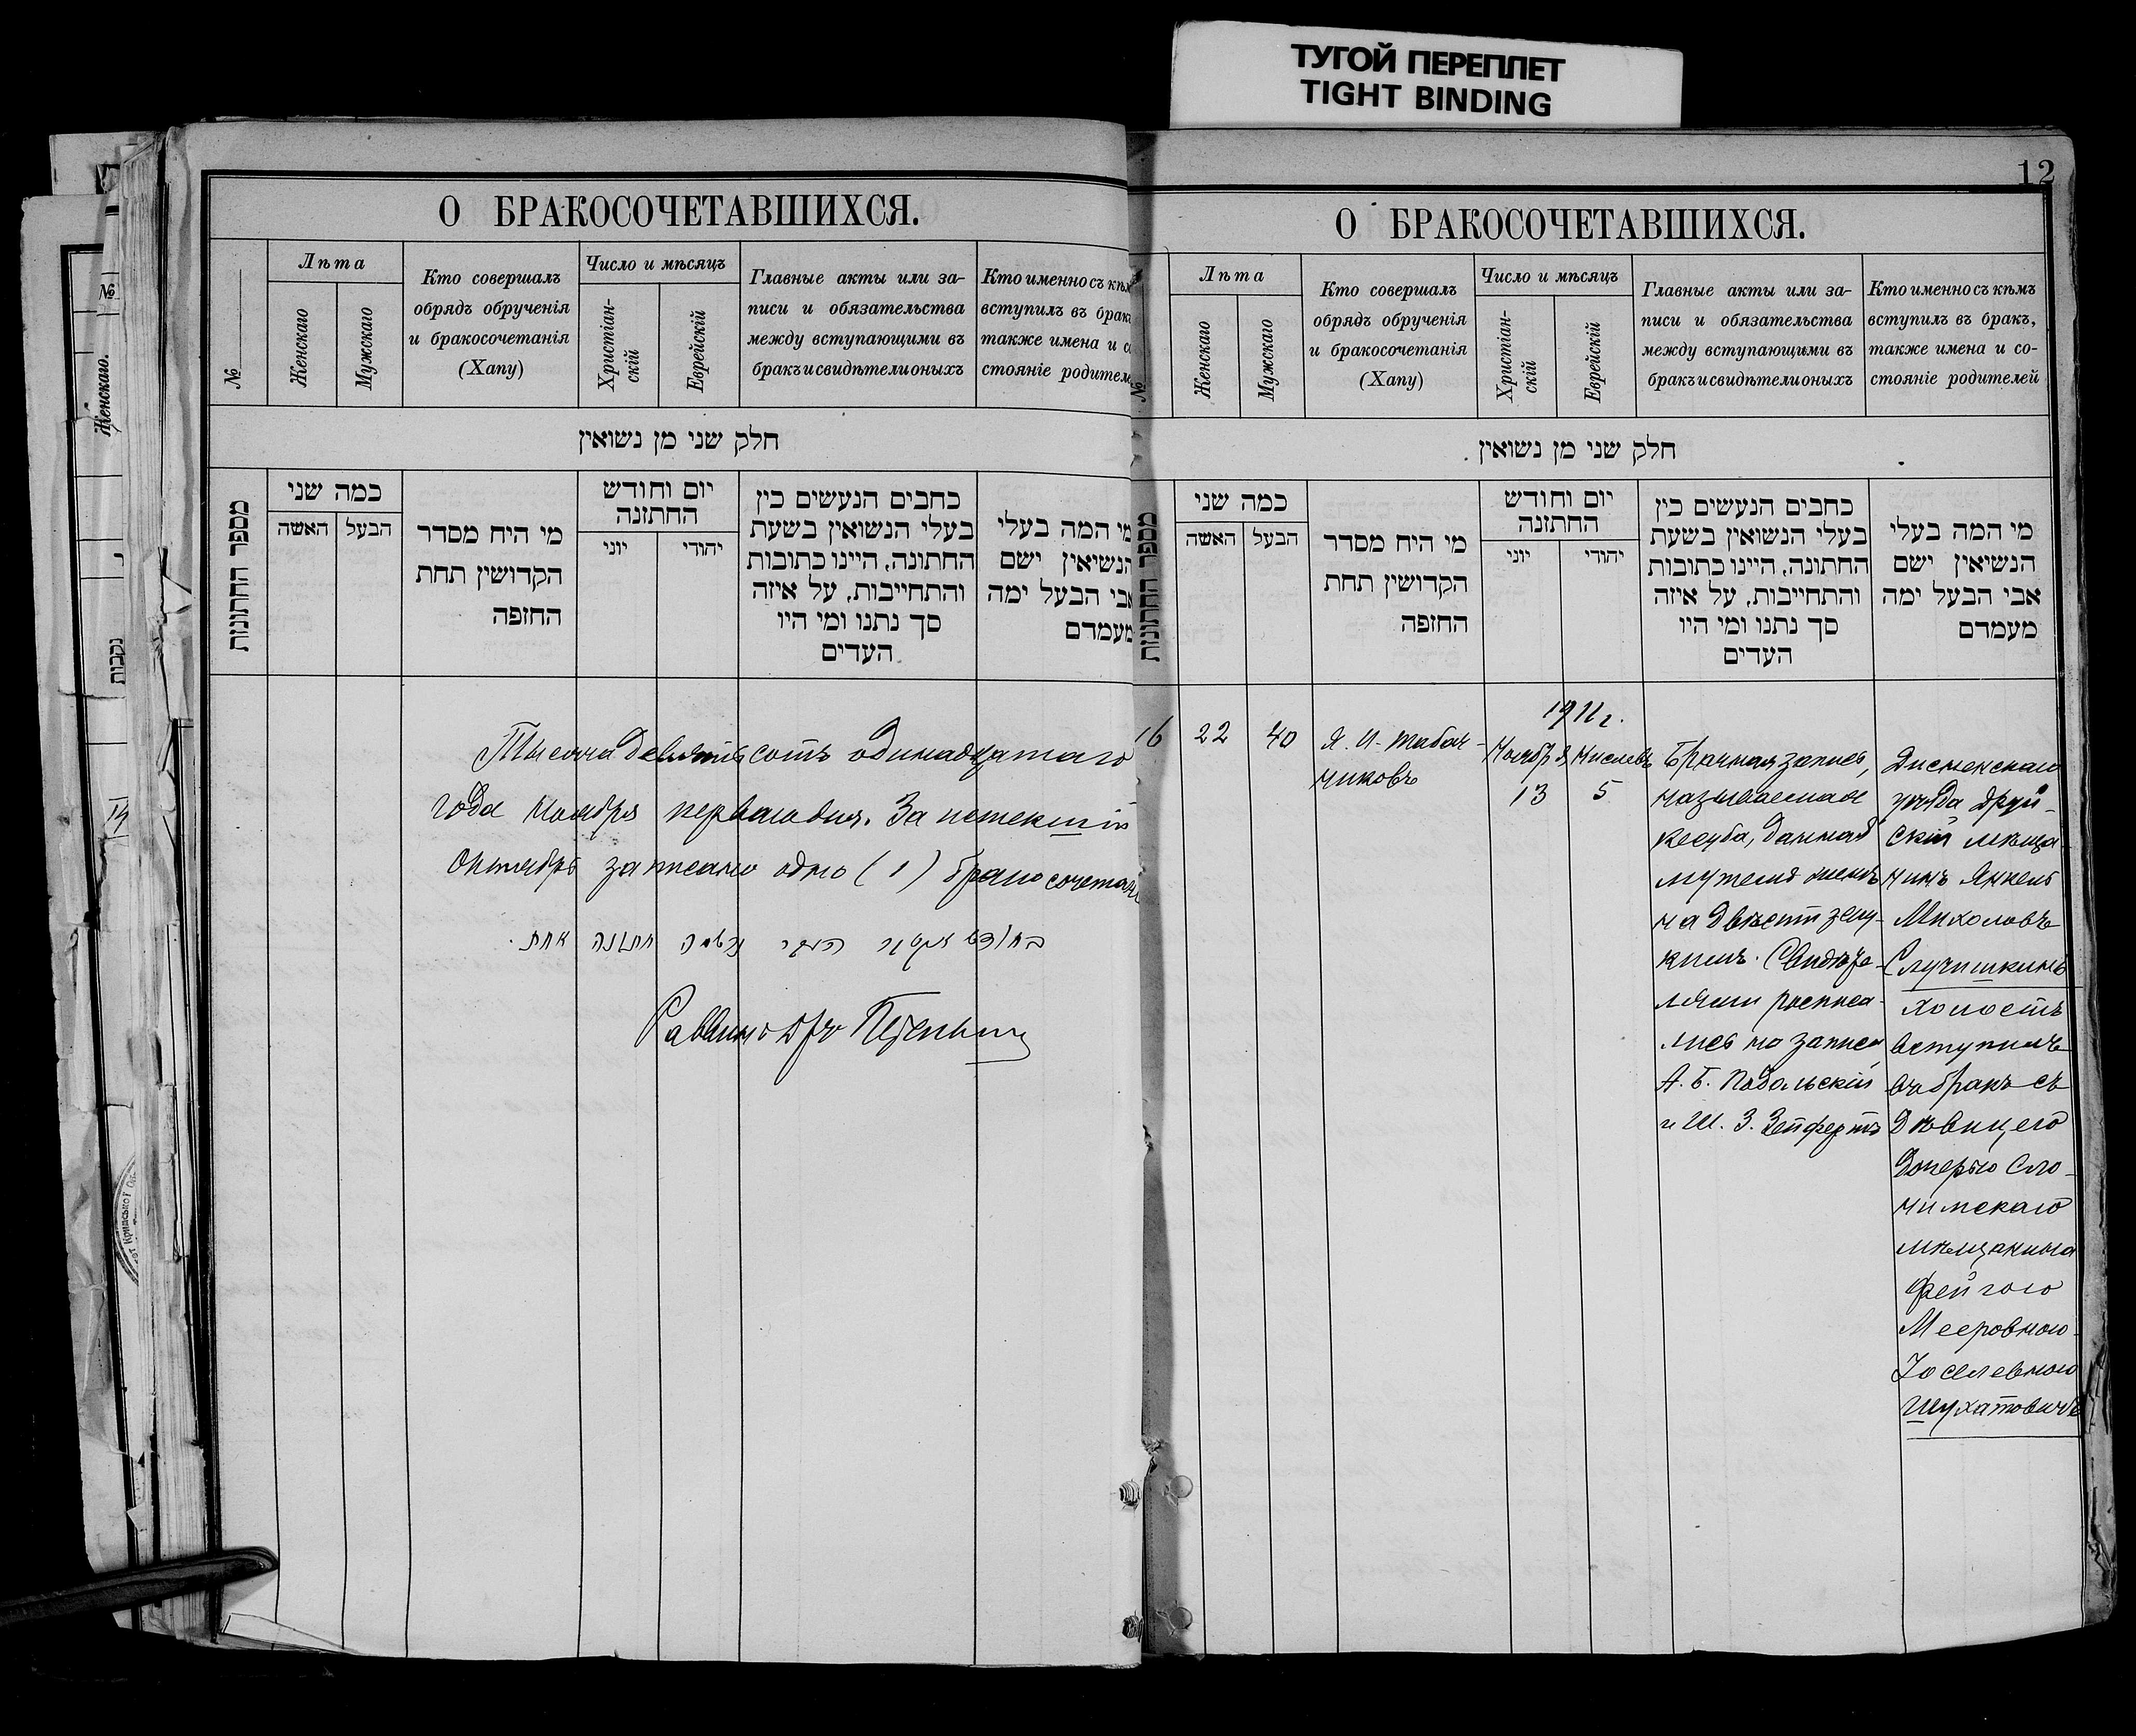 ТУГОЙ ПЕРЕПЛЕТ
TIGHT BINDING
12
О БРАКОСОЧЕТАВШИХСЯ.
№
Лѣта
Женскаго
Мужскаго
Кто совершалъ
обрядъ обрученія
и бракосочетанія
(Хапу)
Число и мѣсяцъ
Христіан-
скій
Еврейскій
Главные акты или за-
писи и обязательства
между вступающими въ
бракъ и свидѣтели оныхъ
Кто именно съ кѣм
вступилъ въ брак
также имена и с
стояніе родител
חלק שני מן נשואין
מספר החתונות
כמה שני
האשה
הבעל
מי היח מסדר
הקדושין תחת
החזפה
יום וחודש
החתזנה
יוני
יהודי
כחבים הנעשים כין
בעלי הנשואין בשעת
החתונה, היינו כתובות
והתחייבות, על איזה
סך נתנו ומי היו
העדים
מי המה בעלי
הנשיאין ישם
אבי הבעל ימה
מעמדם
Тысяча девятьсотъ одинадцатаго
года Ноября перваго дня. За истекшій
Октябрь записано одно (1) бракосочетані
חתונה אחת.
Раввинъ Д-ръ
Женскаго.
№
נקבות
О БРАКОСОЧЕТАВШИХСЯ.
№
Лѣта
Женскаго
Мужскаго
Кто совершалъ
обрядъ обрученія
и бракосочетанія
(Хапу)
Число и мѣсяцъ
Христіан-
скій
Еврейскій
Главные акты или за-
писи и обязательства
между вступающими въ
бракъ и свидѣтели оныхъ
Кто именно съ кѣмъ
вступилъ въ бракъ,
также имена и со-
стояніе родителей
חלק שני מן נשואין
מספר החתונות
כמה שני
האשה
הבעל
מי היח מסדר
הקדושין תחת
החזפה
יום וחודש
החתזנה
יוני
יהודי
כחבים הנעשים כין
בעלי הנשואין בשעת
החתונה, היינו כתובות
והתחייבות, על איזה
סך נתנו ומי היו
העדים
מי המה בעלי
הנשיאין ישם
אבי הבעל ימה
מעמדם
16
22
40
Я. И. Табач-
никовъ
1911 г.
Ноября
13
Кислевъ
5
Брачная запись,
называемая
Кесуба, данная
мужемъ женѣ
на двѣсти зец-
кимъ. Свидѣте-
лями росписа-
лись на записи
А. Б. Подольскій
и Ш. З. Зейфертъ
Дисненскаго
уѣзда Друй-
скій мѣща-
нинъ Янкель
Михоловъ
Случишкинъ
холостъ
вступилъ
въ бракъ съ
Дѣвицею
Дочерью Сло-
нимскаго
мѣщанина
Фейгою
Мееровною-
Іоселевною
Шухатовичъ